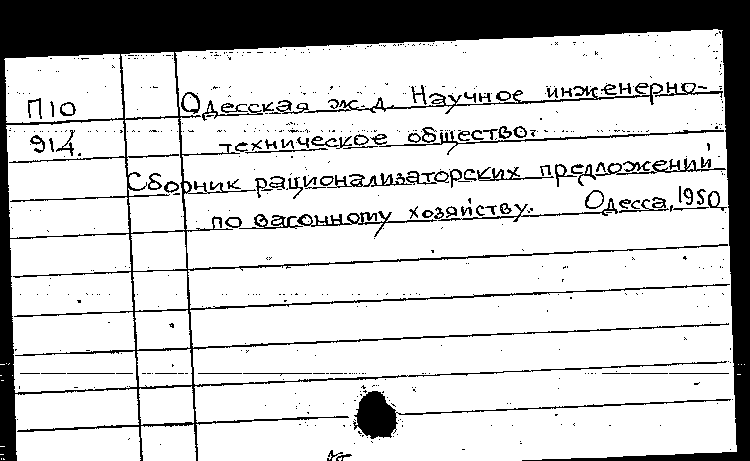 П10
914.
Одесская ж.д. Научное инженерно-
техническое общество.
Сборник рационализаторских предложений
по вагонному хозяйству. Одесса, 1950.